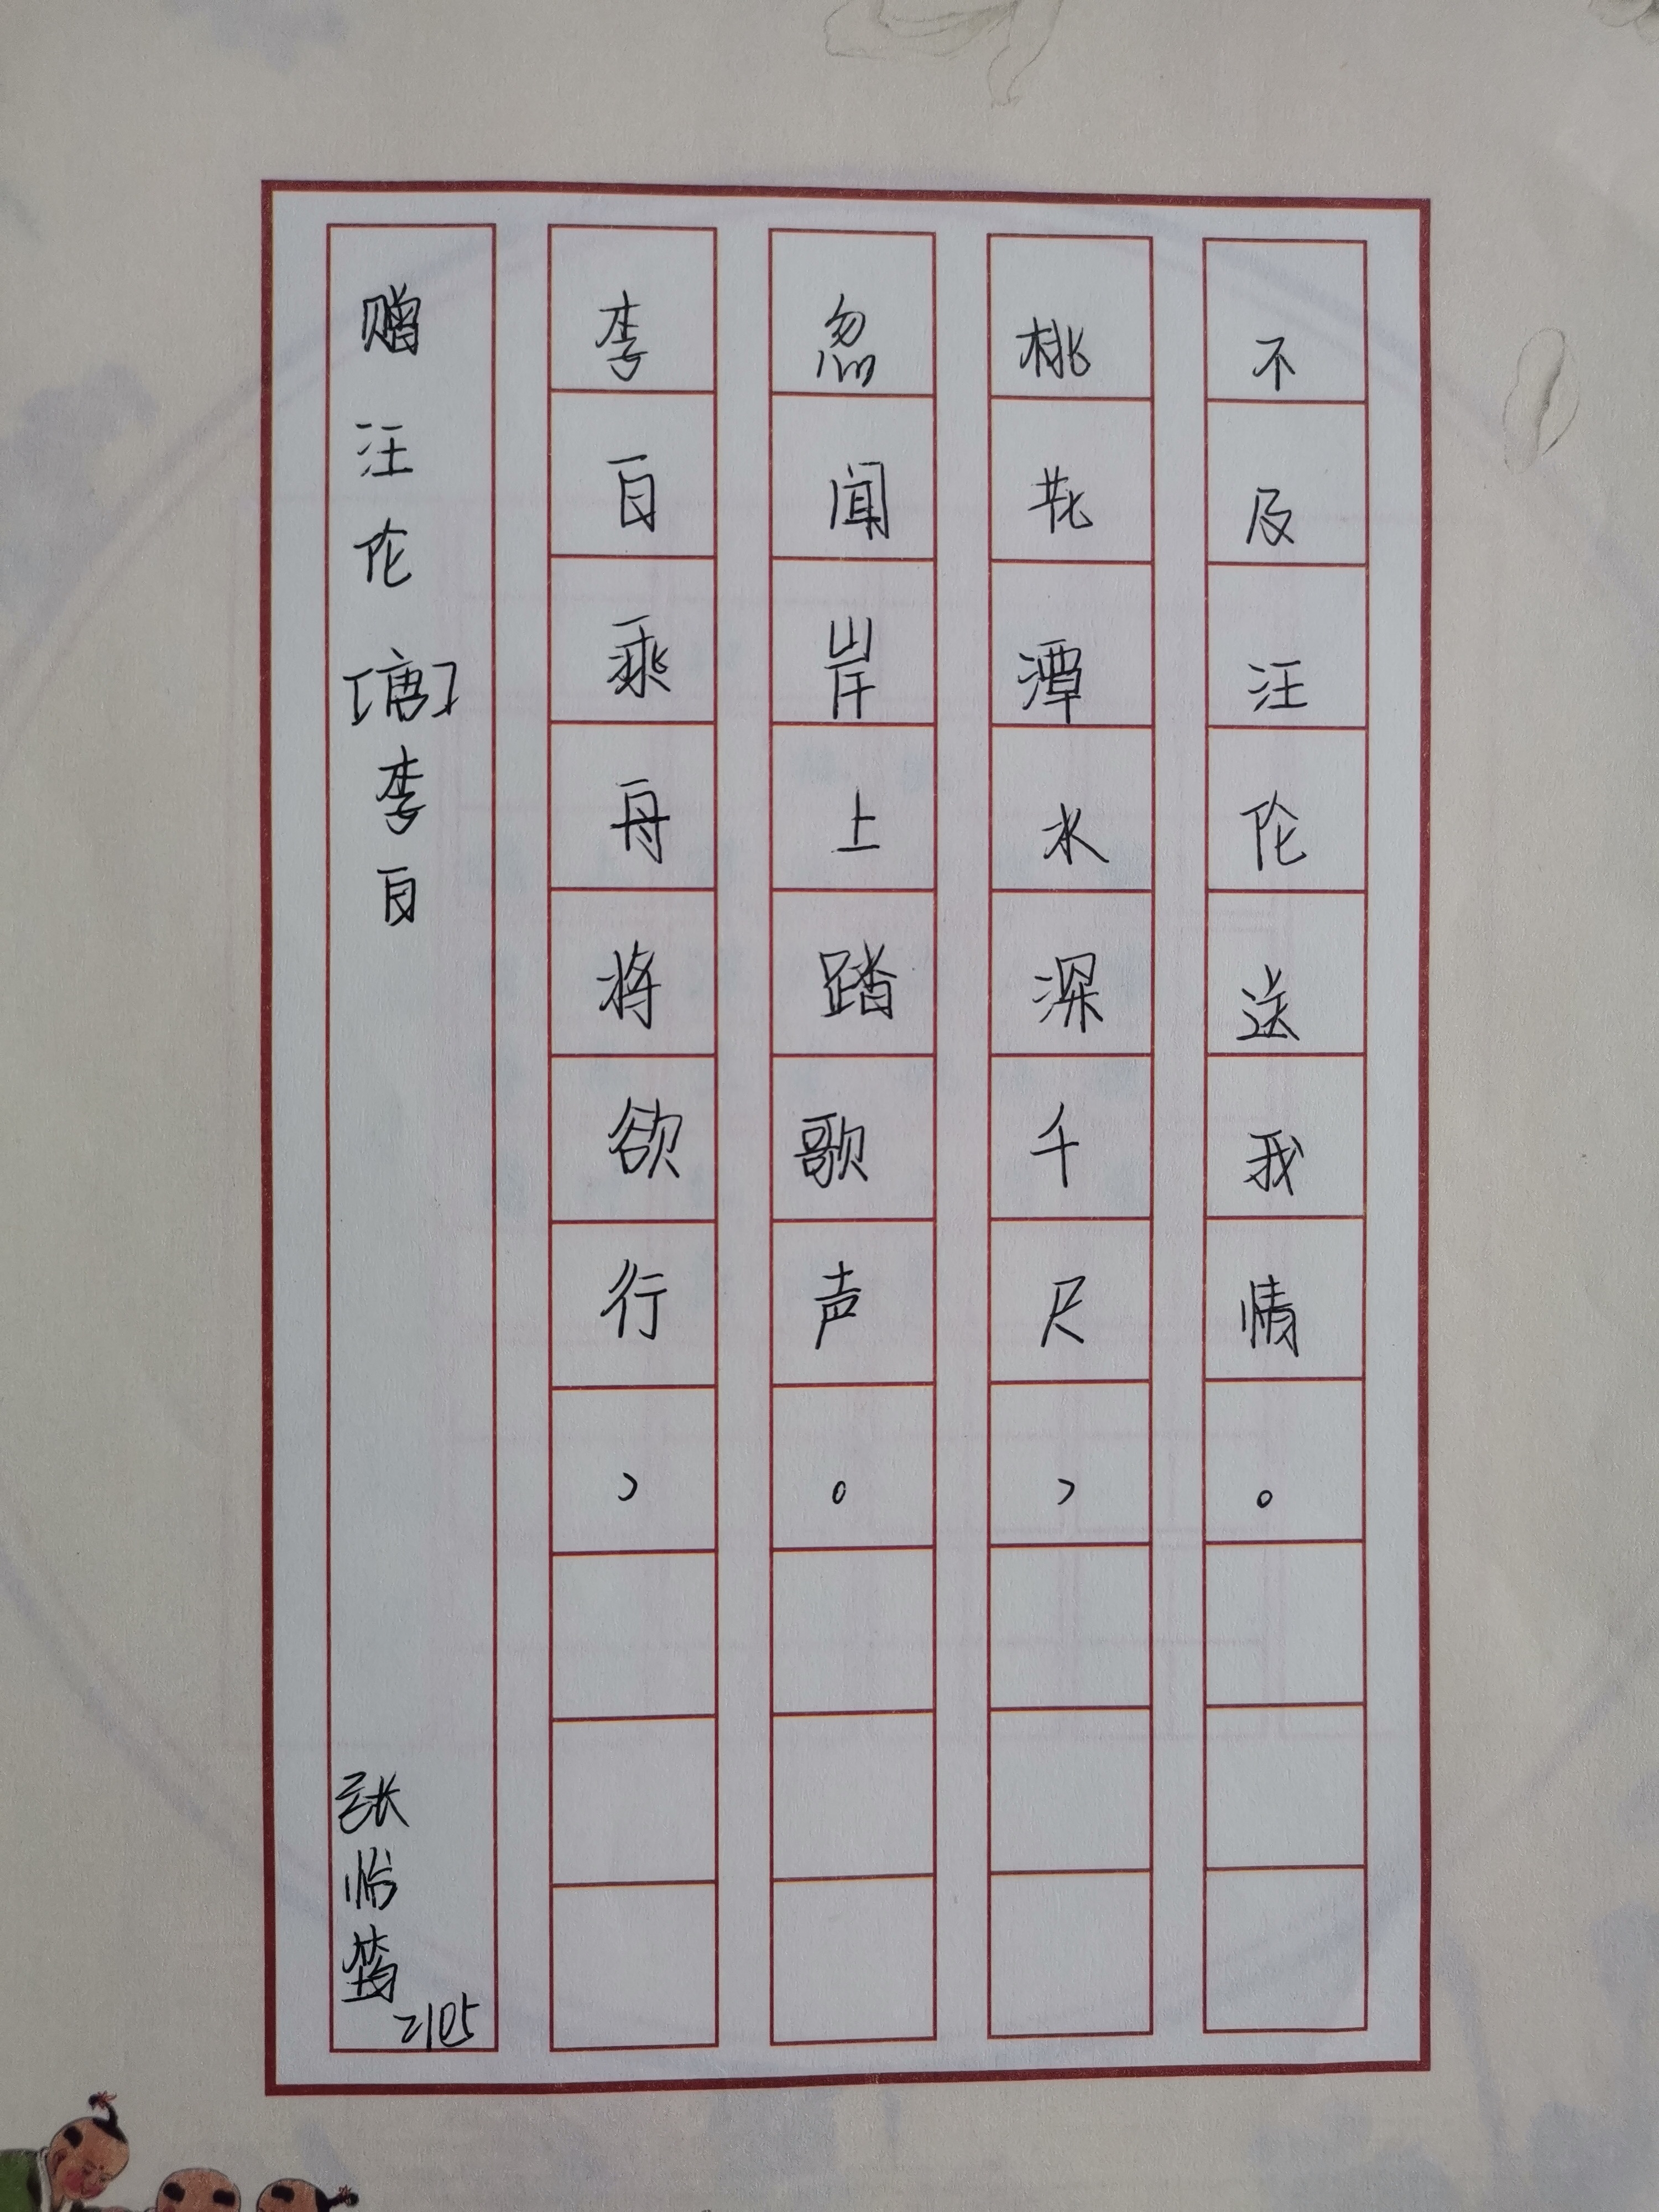 赠汪伦[唐]李白
李白乘舟将欲行，
忽闻岸上踏歌声。
桃花潭水深千尺，
不及汪伦送我情。
张怡筠
2105